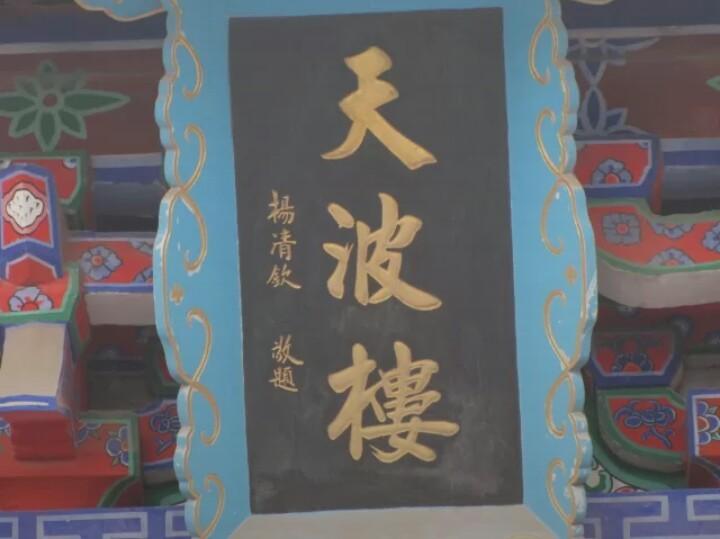 天波樓
楊清欽 敬題